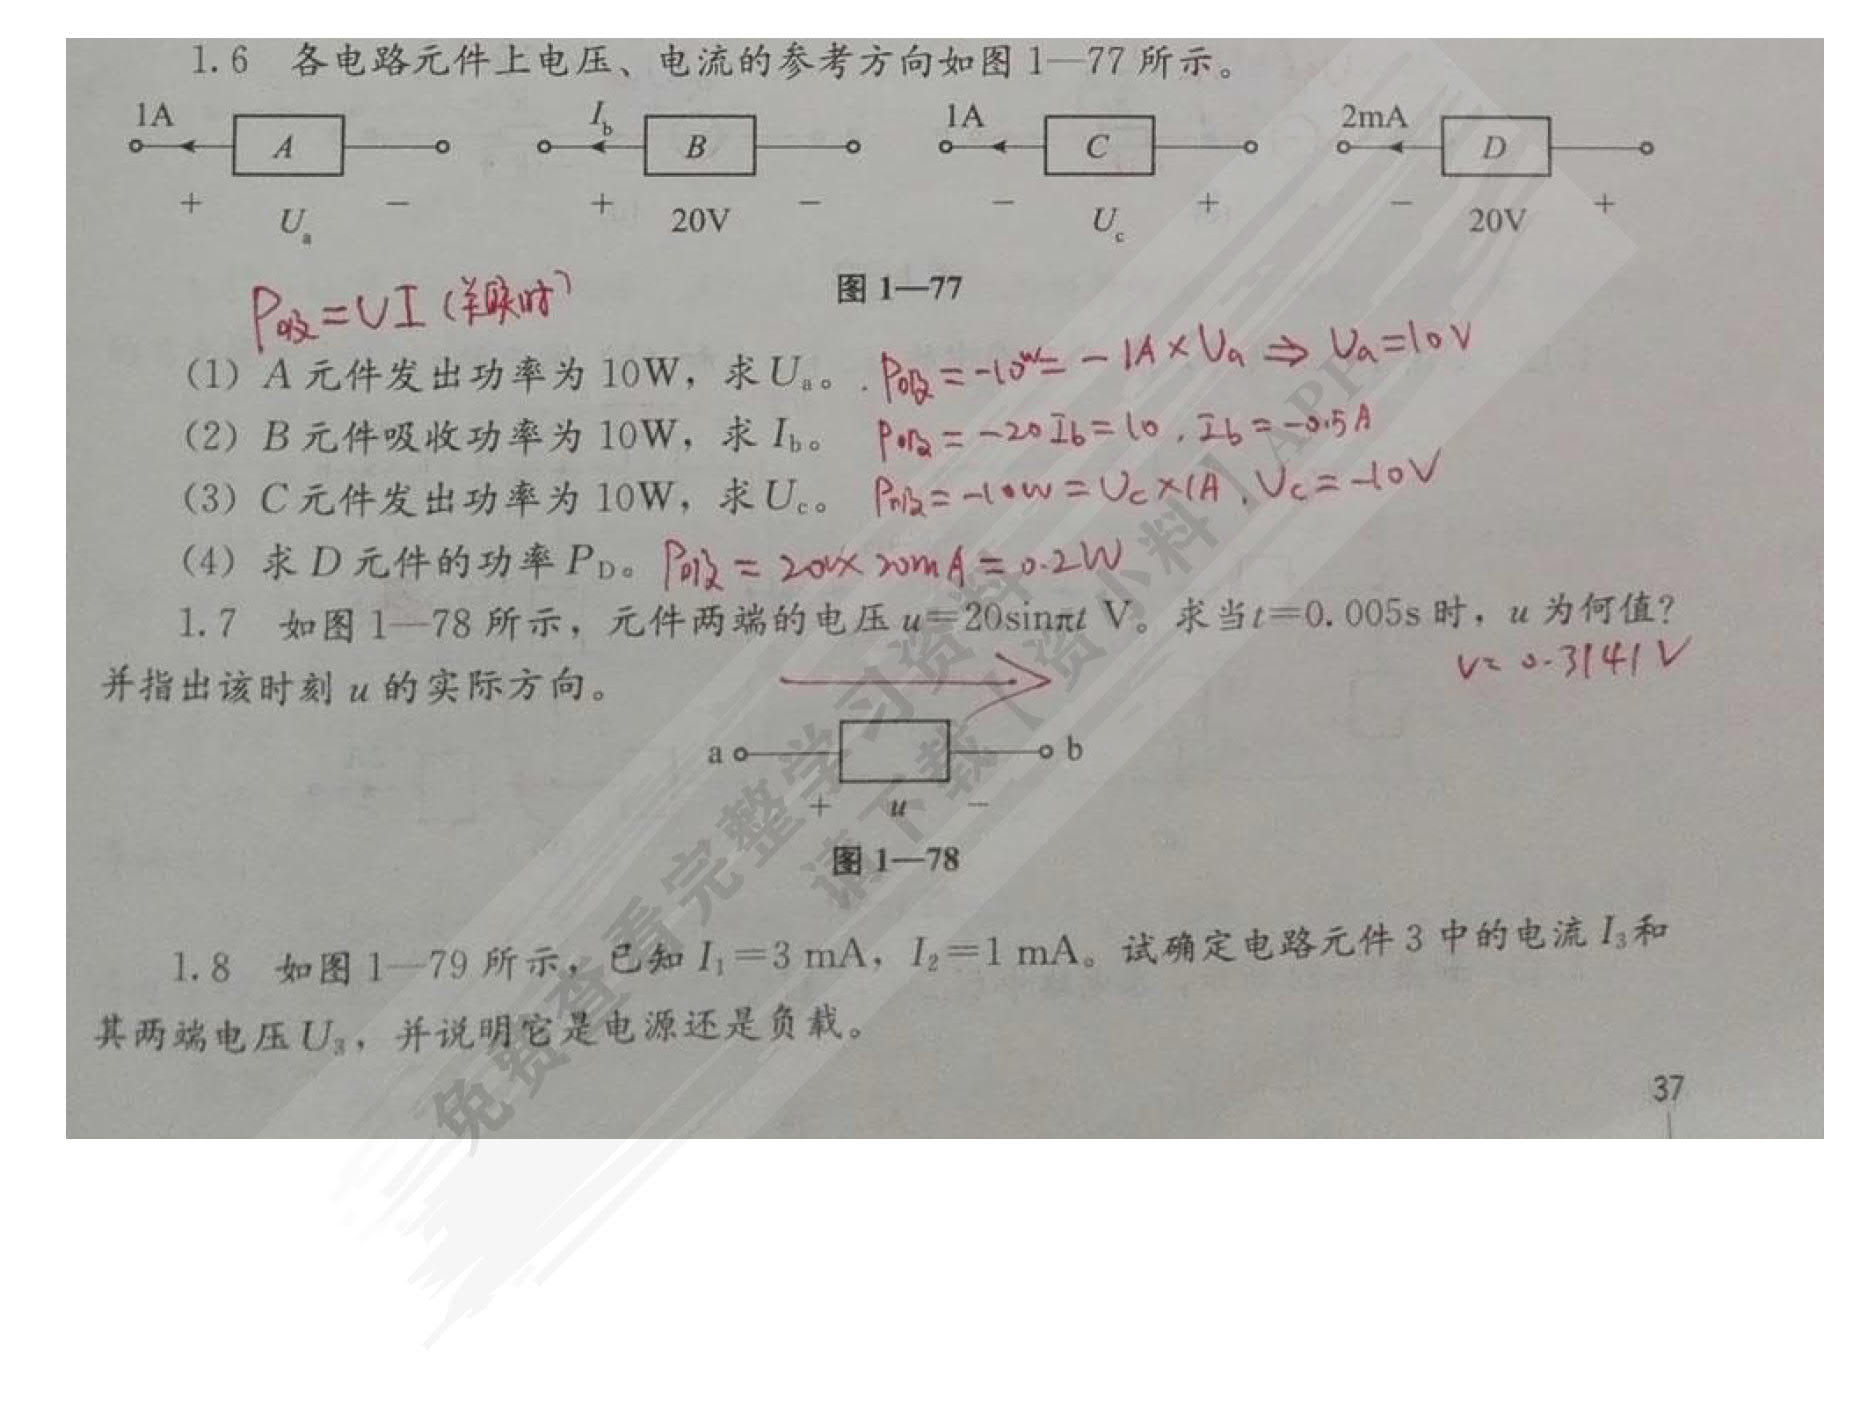 1.6 各电路元件上电压、电流的参考方向如图1—77所示。
1A A + Ua −
Ib B + 20V −
1A C − Uc +
2mA D − 20V +
图1—77
P吸=UI(关联时)
(1) A元件发出功率为10W，求Ua。 P吸=-10W=-1A×Ua⇒Ua=10V
(2) B元件吸收功率为10W，求Ib。 P吸=-20Ib=10，Ib=-0.5A
(3) C元件发出功率为10W，求Uc。 P吸=-10W=Uc×1A，Uc=-10V
(4) 求D元件的功率PD。 P吸=20V×20mA=0.2W
1.7 如图1—78所示，元件两端的电压u=20sinπt V。求当t=0.005s时，u为何值？
V=0.3141V
并指出该时刻u的实际方向。
a b
+ u −
图1—78
1.8 如图1—79所示，已知I1=3 mA，I2=1 mA。试确定电路元件3中的电流I3和
其两端电压U3，并说明它是电源还是负载。
37
免费查看完整学习资料
请下载【资小料】APP